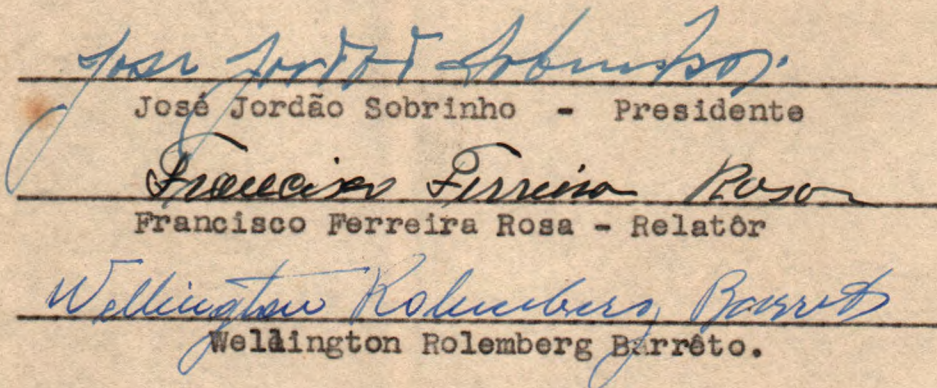 José Jordão Sobrinho.
José Jordão Sobrinho - Presidente
Francisco Ferreira Rosa
Francisco Ferreira Rosa - Relatôr
Wellington Rolemberg Barreto
Wellington Rolemberg Barrêto.